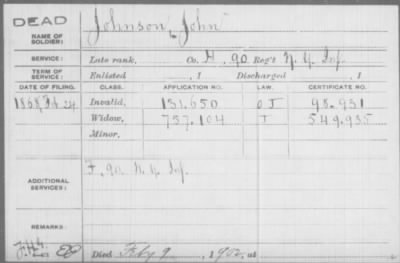 DEAD
NAME OF SOLDIER: Johnson, John
SERVICE: Late rank, Co. H, 90 Reg't N.Y. Inf.
TERM OF SERVICE: Enlisted , 1 Discharged , 1
DATE OF FILING. CLASS. APPLICATION NO. LAW. CERTIFICATE NO.
1868, Feb. 24 Invalid, 131.650 O J 98.931
Widow, 757.104 J 549.935
Minor,
ADDITIONAL SERVICES: F. 90 N.Y. Inf.
REMARKS:
Died Feby 9, 1902, at